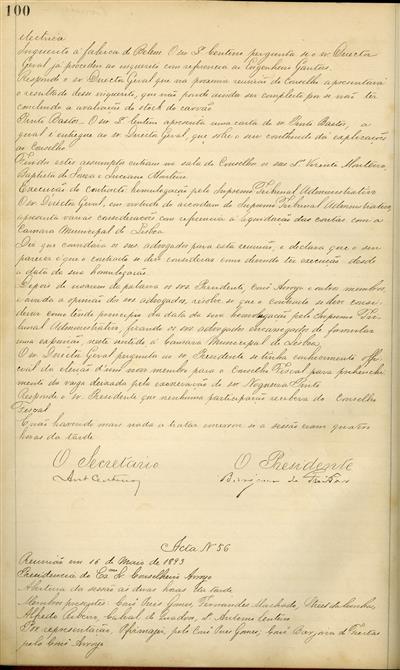 100
electrica
Inquerito á fabrica de Belem. O sr. Sr. Centeno pergunta se o sr. Director
Geral já procedeu ao inquerito com referencia ao Engenheiro Gantes.
Responde o sr. Director Geral que na proxima reunião do Conselho apresentará
o resultado desse inquerito, que não pôde ainda ser completo por se não ter
concluido a avaliação do stock de carvão
Pinto Bastos. O sr. Sr. Centeno apresenta uma carta do sr. Pinto Bastos, a
qual é entregue ao sr. Director Geral, que sobre o seu contheudo dá explicações
ao Conselho.
Findos estes assumptos entram na sala do Conselho os srs. Drs. Vicente Monteiro,
Baptista de Sousa e Luciano Monteiro
Execução do contracto homologado pelo Supremo Tribunal Administrativo
O sr. Director Geral, em virtude do accordam do Supremo Tribunal Administrativo,
apresenta varias considerações com referencia á liquidação das contas com a
Camara Municipal de Lisboa
Diz que convidara os srs. advogados para esta reunião, e declara que o seu
parecer é que o contracto se deve considerar como devendo ter execução desde
a data da sua homologação.
Depois de usarem da palavra os srs. Presidente, Arroyo e outros membros
e ouvida a opinião dos srs. advogados, resolve-se que o contracto se deve consi-
derar como tendo principio da data da sua homologação pelo Supremo Tri-
bunal Administrativo, ficando os srs. advogados encarregados de formular
uma exposição neste sentido á Camara Municipal de Lisboa
O sr. Director Geral pergunta ao sr. Presidente se tinha conhecimento offi-
cial da eleição d'um novo membro para o Conselho Fiscal para preenchi-
mento da vaga deixada pela exoneração do sr. Nogueira Pinto
Responde o sr. Presidente que nenhuma participação recebera do Conselho
Fiscal
E não havendo mais nada a tratar encerrou-se a sessão eram quatro
horas da tarde
O Secretario O Presidente
Acta Nº 56
Reunião em 16 de Maio de 1893
Presidencia do Exmo Sr Conselheiro Arroyo
Abertura da sessão ás duas horas da tarde
Membros presentes: Gomes, Fernandes Machado,
Alfredo Ribeiro, Cabral de Sr. Antonio Centeno
Por representação,
pelo Arroyo